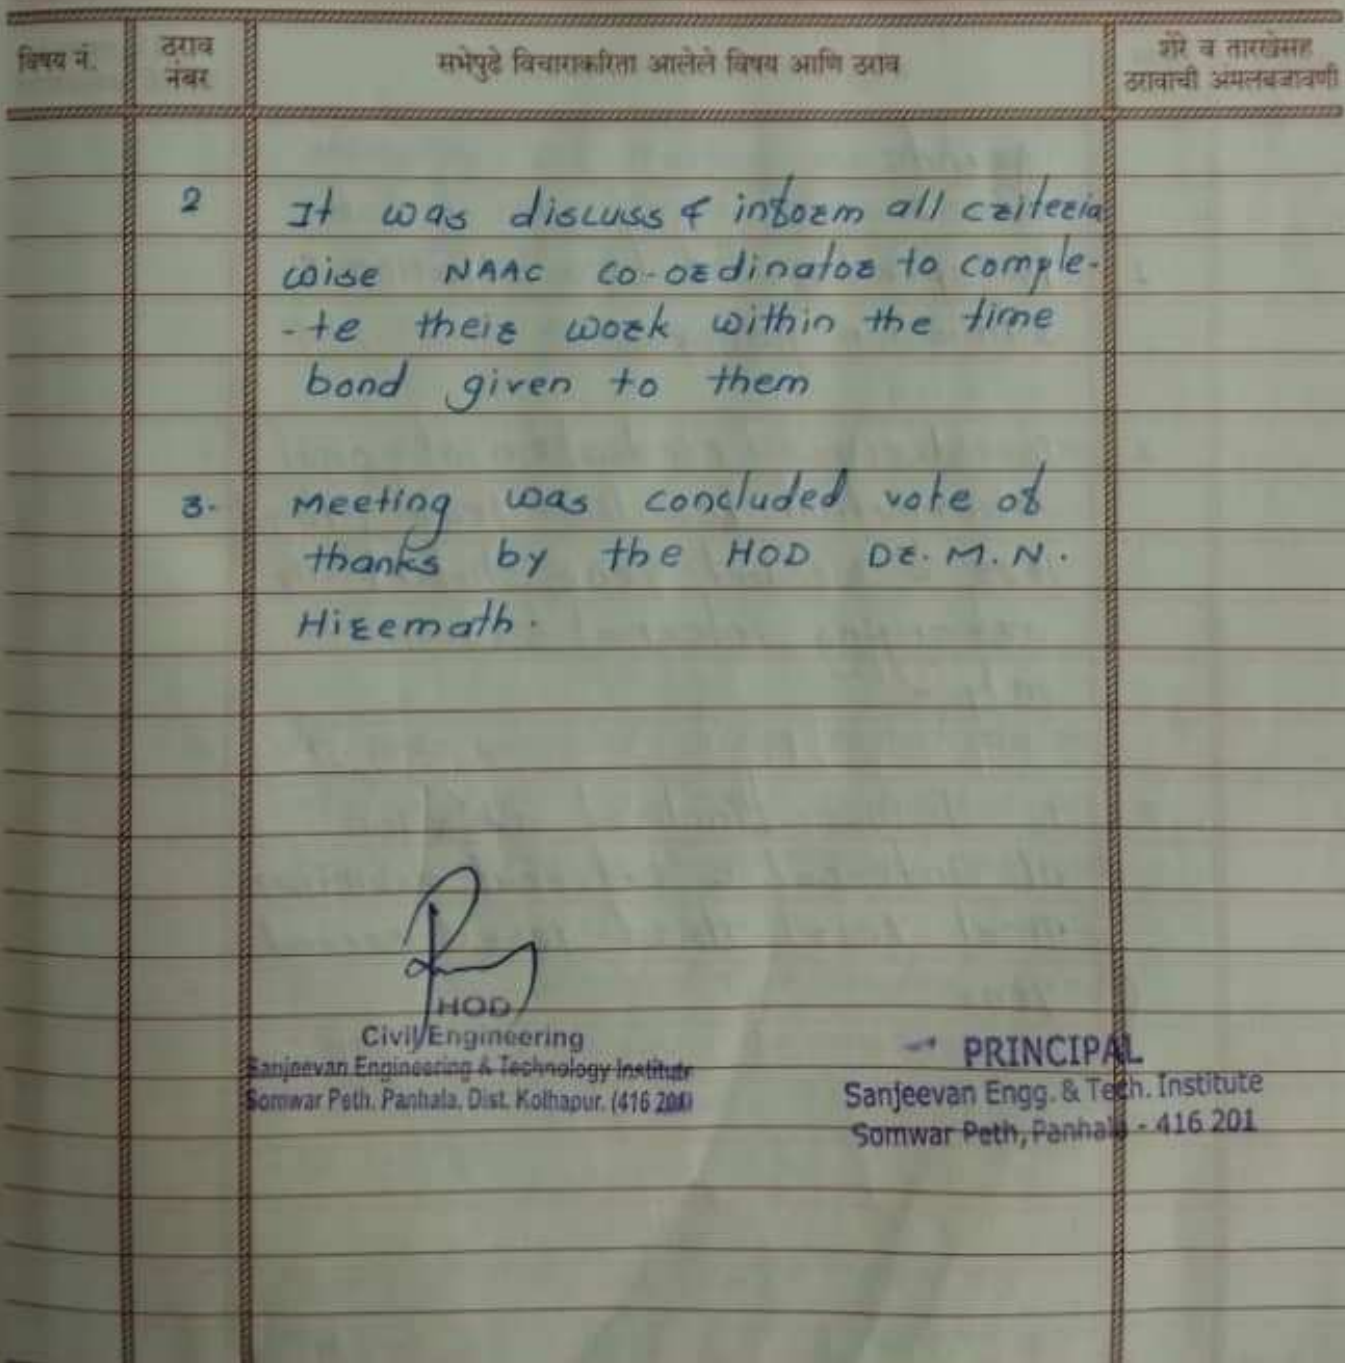 विषय नं.
ठराव नंबर
सभेपुढे विचाराकरिता आलेले विषय आणि ठराव
शेरे व तारखेसह ठरावाची अमलबजावणी
2 It was discuss & inform all criteria
wise NAAC co-ordinator to comple-
-te their work within the time
bond given to them
3. Meeting was concluded vote of
thanks by the HOD Dr. M. N.
Hiremath.
HOD
Civil Engineering
Sanjeevan Engineering & Technology Institute
Somwar Peth, Panhala, Dist. Kolhapur. (416 201)
PRINCIPAL
Sanjeevan Engg. & Tech. Institute
Somwar Peth, Panhala - 416 201